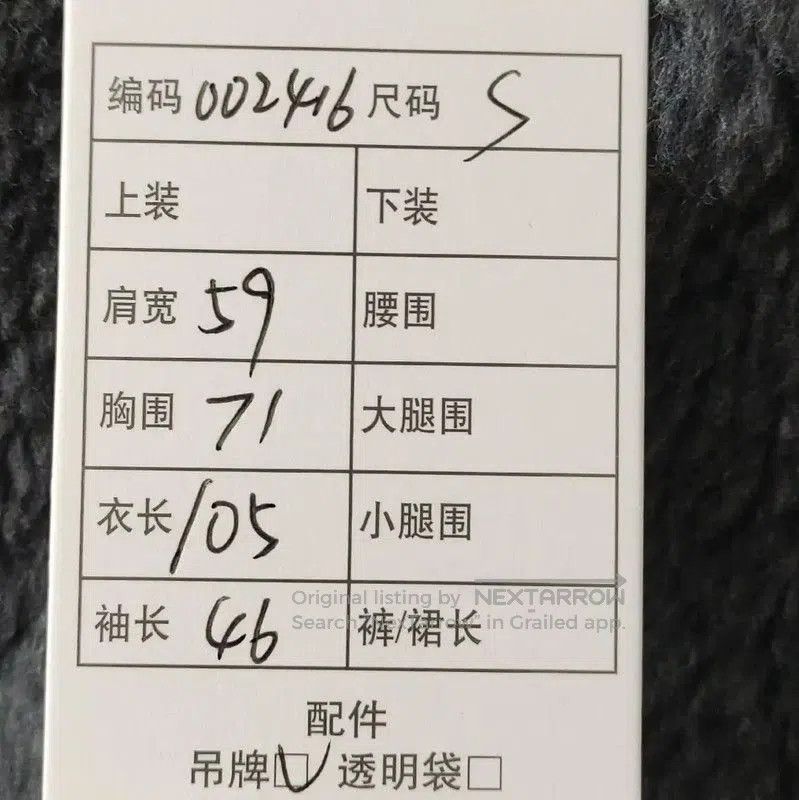 编码 002416 尺码 S
上装 下装
肩宽 59 腰围
胸围 71 大腿围
衣长 105 小腿围
Original listing by NEXTARROW
Search "Nextarrow" in Grailed app.
袖长 46 裤/裙长
配件
吊牌☑ 透明袋□